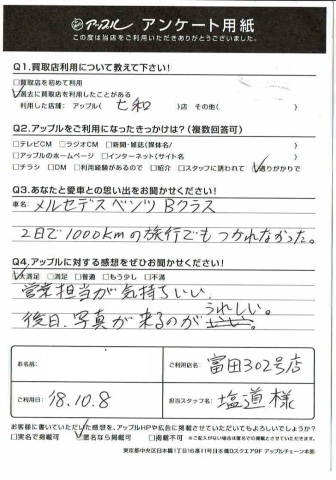 アップル アンケート用紙
この度は当店をご利用いただきありがとうございました。
Q1.買取店利用について教えて下さい!
□買取店を初めて利用
☑過去に買取店を利用したことがある
利用した店舗: アップル( 七和 )店 その他( )
Q2.アップルをご利用になったきっかけは?(複数回答可)
□テレビCM □ラジオCM □新聞・雑誌(媒体名/ )
□アップルのホームページ □インターネット(サイト名 )
□チラシ □DM □利用経験があるので □紹介 □スタッフに誘われて ☑通りがかりで
Q3.あなたと愛車との思い出をお聞かせください!
車名: メルセデスベンツ Bクラス
2日で1000kmの旅行でもつかれなかった。
Q4.アップルに対する感想をぜひお聞かせください!
☑大満足 □満足 □普通 □もう少し □不満
営業担当が気持ちいい、
後日、写真が来るのがうれしい。
お名前:
ご利用店名: 富田302号店
ご利用日: 18.10.8
担当スタッフ名: 塩道様
お客様に書いていただいた感想を、アップルHPや広告に掲載させていただいてもよろしいでしょうか?
□実名で掲載可 ☑匿名なら掲載可 □掲載不可 ※ご記入がない場合は匿名での掲載とさせていただきます。
東京都中央区日本橋1丁目16番11号日本橋Dスクエア9F アップルチェーン本部